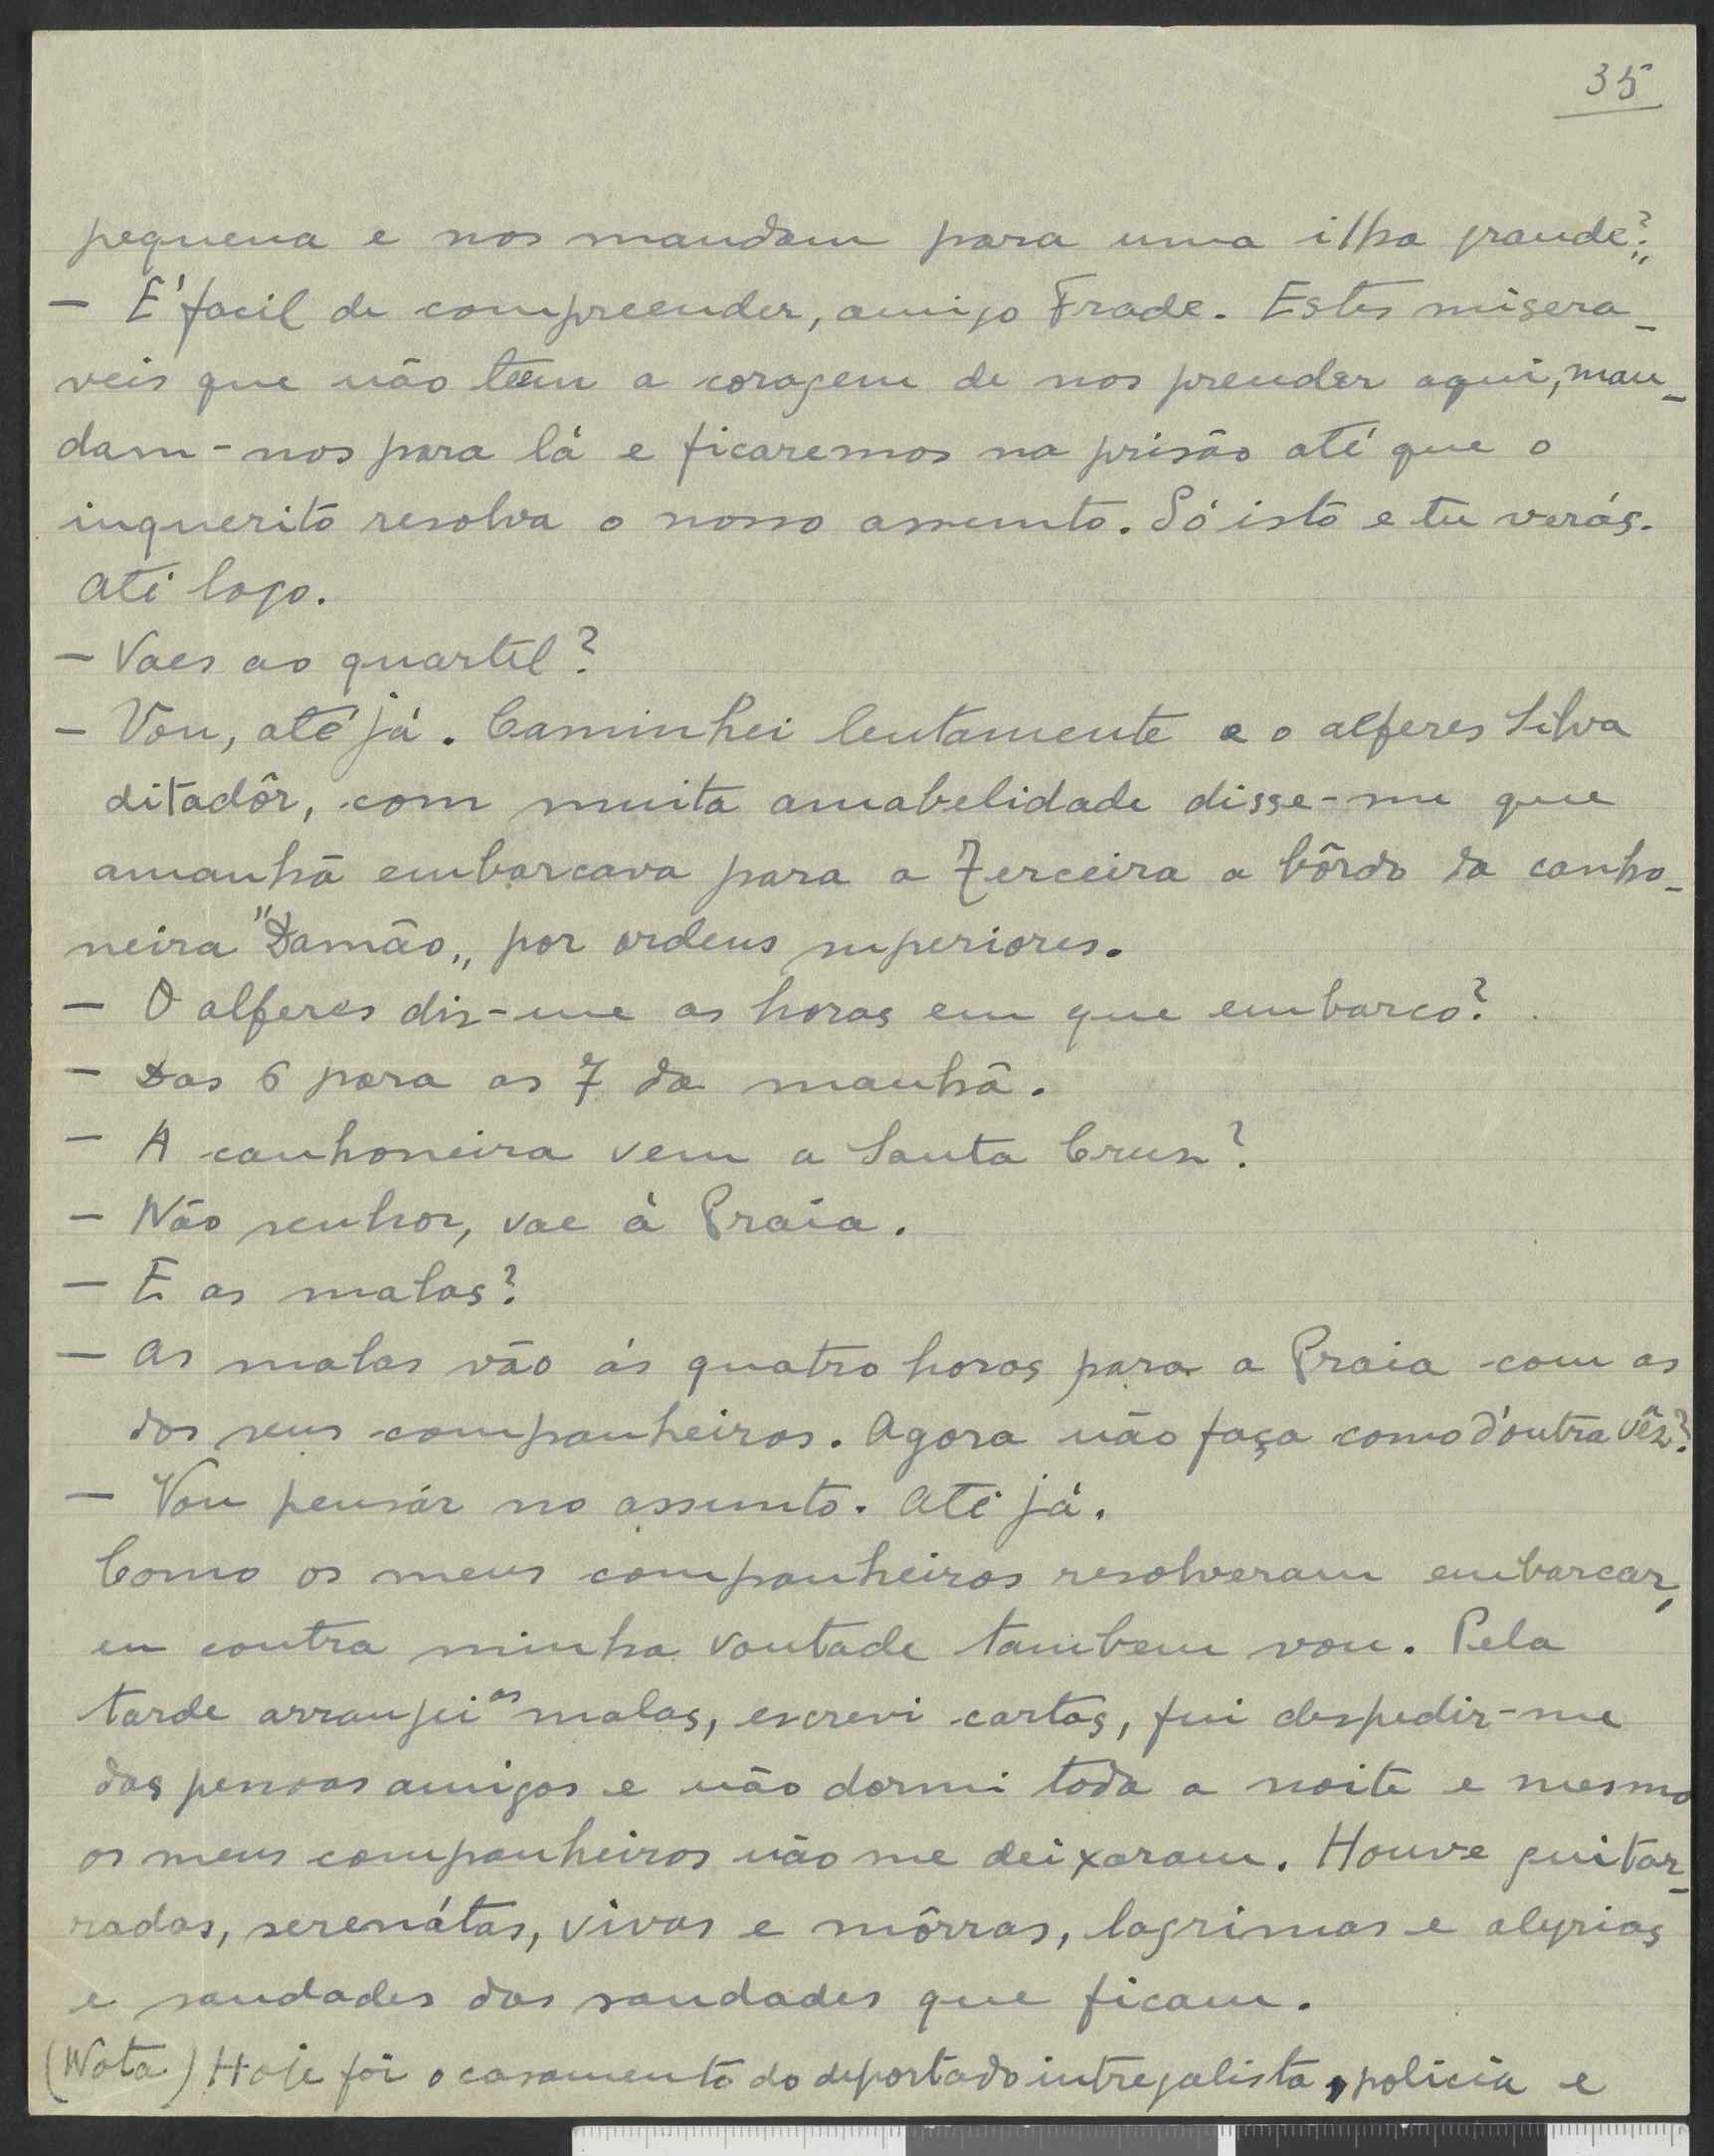 35
pequena e nos mandam para uma ilha grande?„
— É facil de compreender, amigo Frade. Estes misera-
veis que não teem a coragem de nos prender aqui, man-
dam-nos para lá e ficaremos na prisão até que o
inquerito resolva o nosso assunto. Só isto e tu verás.
Até logo.
— Vaes ao quartel?
— Vou, até já. Caminhei lentamente e o alferes Silva
ditadôr, com muita amabelidade disse-me que
amanhã embarcava para a Terceira a bôrdo da canho-
neira "Damão„ por ordens superiores.
— O alferes diz-me as horas em que embarco?
— Das 6 para as 7 da manhã.
— A canhoneira vem a Santa Cruz?
— Não senhor, vae à Praia.
— E as malas?
— As malas vão ás quatro horas para a Praia com as
dos seus companheiros. Agora não faça como d'outra vêz?
— Vou pensár no assunto. Até já.
Como os meus companheiros resolveram embarcar,
eu contra minha vontade tambem vou. Pela
tarde arranjei as malas, escrevi cartas, fui despedir-me
das pessoas amigas e não dormi toda a noite e mesmo
os meus companheiros não me deixaram. Houve guitar-
radas, serenátas, vivas e môrras, lagrimas e alegrias
e saudades das saudades que ficam.
(Nota) Hoje foi o casamento do deportado intregalista, policia e